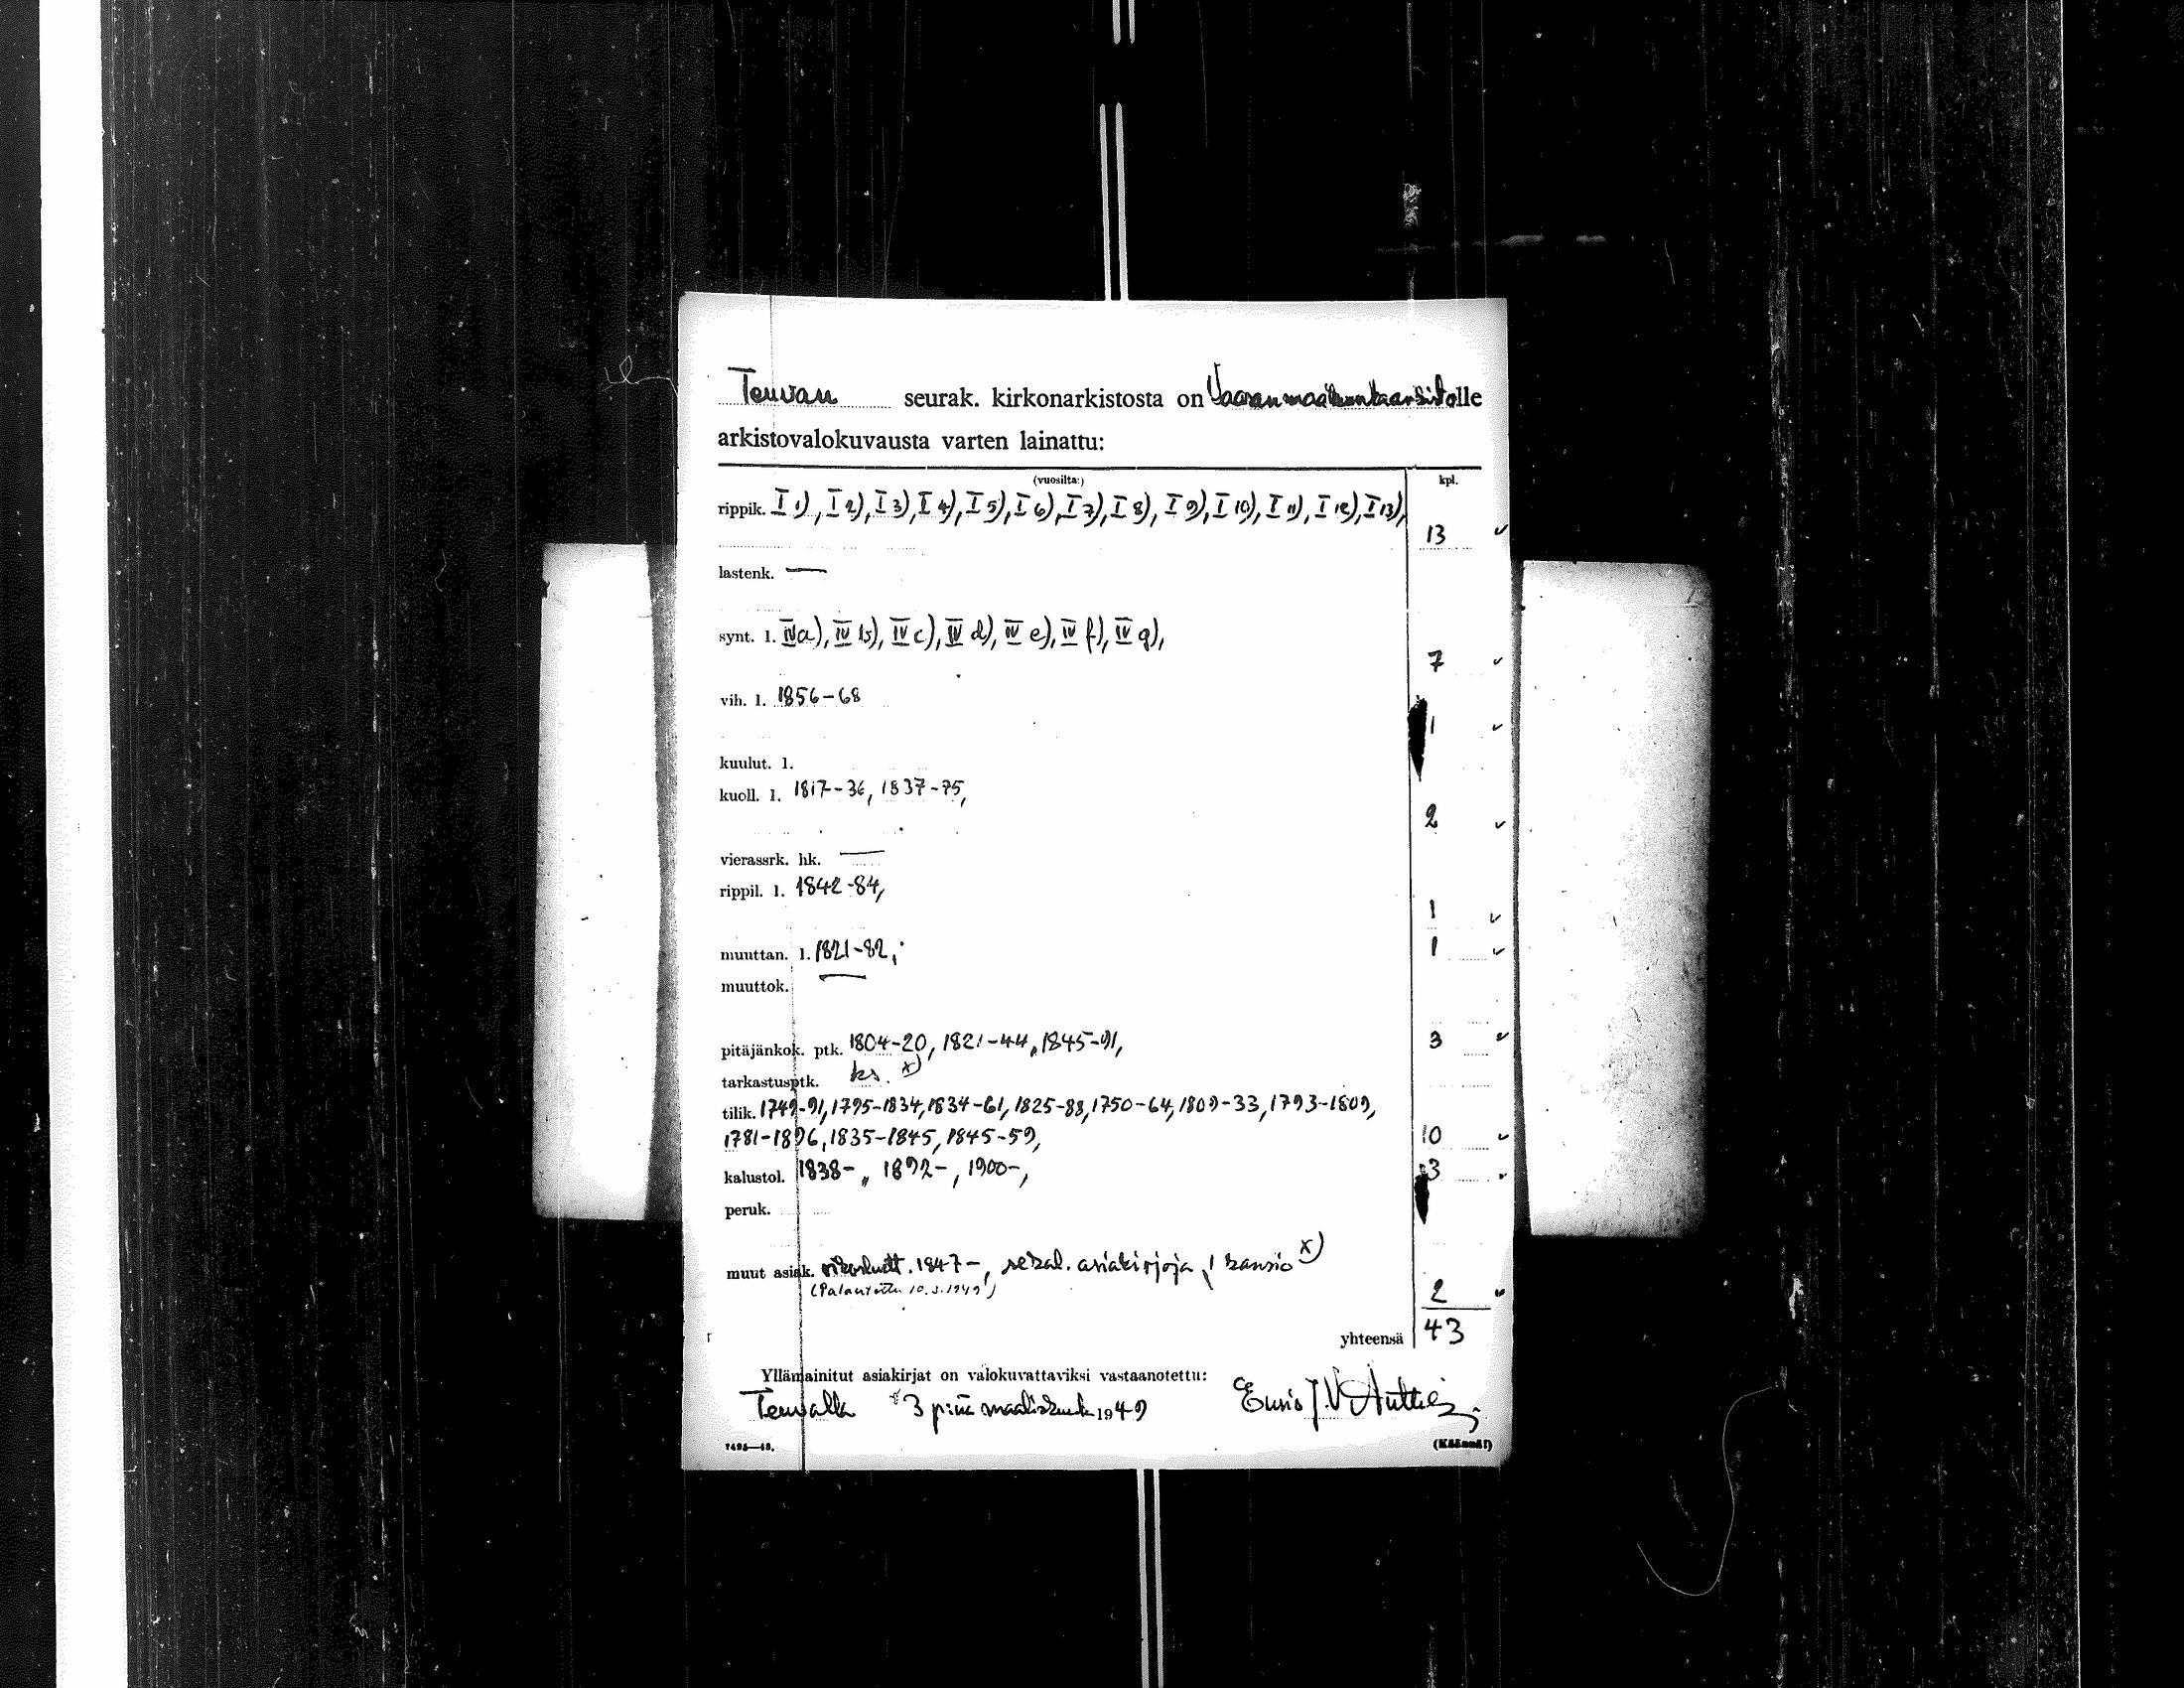 Teuvan seurak. kirkonarkistosta on Vaasan maakuntaarkistolle
arkistovalokuvausta varten lainattu:
(vuosilta:) kpl.
rippik. I 1), I 2), I 3), I 4), I 5), I 6), I 7), I 8), I 9), I 10), I 11), I 12), I 13),
13
lastenk. —
synt. l. IV a), IV b), IV c), IV d), IV e), IV f), IV g),
7
vih. l. 1856-68
1
kuulut. l.
kuoll. l. 1817-36, 1837-75,
2
vierassrk. hk. —
rippil. l. 1842-84,
1
muuttan. l. 1821-82, 1
muuttok. —
pitäjänkok. ptk. 1804-20, 1821-44, 1845-91, 3
tarkastusptk. ks. x)
tilik. 1749-91, 1795-1834, 1834-61, 1825-88, 1750-64, 1809-33, 1793-1809,
1781-1896, 1835-1845, 1845-59, 10
kalustol. 1838-, 1892-, 1900-, 3
peruk.
muut asiak. 1847-, sekal. asiakirjoja, 1 kansio x)
(Palautettu 10.3.1949) 2
yhteensä 43
Yllämainitut asiakirjat on valokuvattaviksi vastaanotettu:
Teuvalla 3 p:nä maaliskuuta 1949
7495—48. (Käännä!)